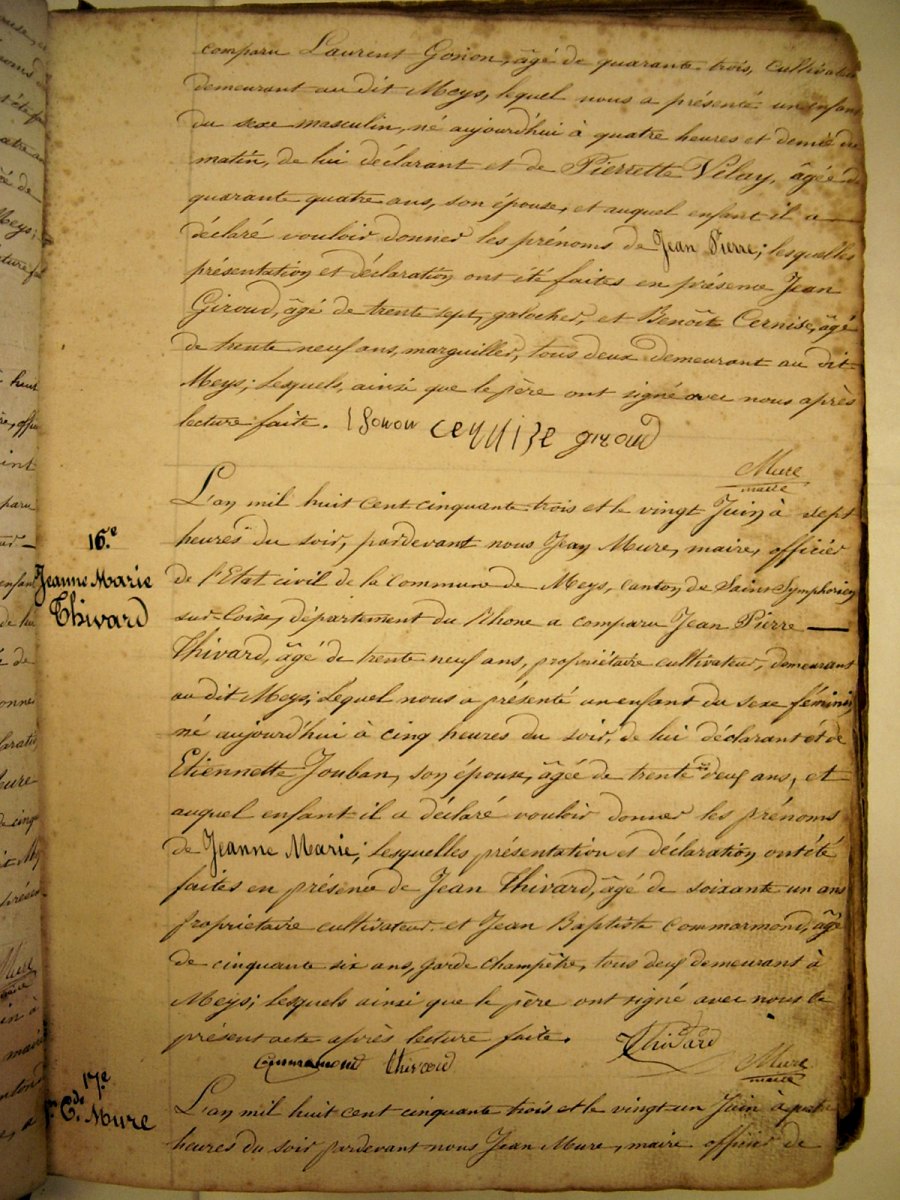 comparu Laurent Gonon, âgé de quarante trois, cultivateur
demeurant au dit Meys, lequel nous a présenté un enfant
du sexe masculin, né aujourd'hui à quatre heures et demie du
matin, de lui déclarant et de Pierrette Vilay, âgée de
quarante quatre ans, son épouse, et auquel enfant il a
déclaré vouloir donner les prénoms de Jean Pierre; lesquelles
présentation et déclaration ont été faites en présence Jean
Giroud, âgé de trente sept, galocher, et Benoît Cernise, âgé
de trente neuf ans, marguillier, tous deux demeurant au dit
Meys; Lesquels, ainsi que le père ont signé avec nous après
lecture faite. Gonon Cernize giroud
Mure
maire
16.e
Jeanne Marie
Thivard
L'an mil huit cent cinquante trois et le vingt Juin à sept
heures du soir, pardevant nous Jean Mure, maire, officier
de l'Etat civil de la Commune de Meys, canton de Saint Symphorien
sur-Loise, département du Rhone a comparu Jean Pierre —
Thivard, âgé de trente neuf ans, propriétaire cultivateur, demeurant
au dit Meys; Lequel nous a présenté un enfant du sexe féminin
né aujourd'hui à cinq heures du soir, de lui déclarant et de
Etiennette Jouban, son épouse, âgée de trente deux ans, et
auquel enfant il a déclaré vouloir donner les prénoms
de Jeanne Marie; Lesquelles présentation et déclaration ont été
faites en présence de Jean Thivard, âgé de soixante un ans
propriétaire cultivateur et Jean Baptiste Commarmond, âgé
de cinquante six ans, garde champêtre, tous deux demeurant à
Meys; Lesquels ainsi que le père ont signé avec nous le
présent acte après lecture faite. Thivard
Commarmond Thivard Mure
maire
17.e
Mure
L'an mil huit cent cinquante trois et le vingt un Juin à quatre
heures du soir pardevant nous Jean Mure, maire officier de